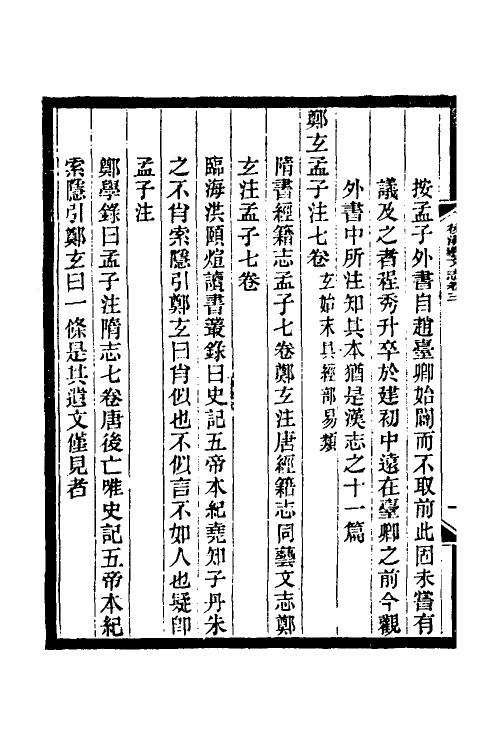 按孟子外書自趙臺卿始闢而不取前此固未嘗有
議及之者程秀升卒於建初中遠在臺卿之前今觀
外書中所注知其本猶是漢志之十一篇
鄭玄孟子注七卷 玄始末具經部易類
隋書經籍志孟子七卷鄭玄注唐經籍志同藝文志鄭
玄注孟子七卷
臨海洪頤煊讀書叢錄曰史記五帝本紀堯知子丹朱
之不肖索隱引鄭玄曰肖似也不似言不如人也疑卽
孟子注
鄭學錄曰孟子注隋志七卷唐後亡唯史記五帝本紀
索隱引鄭玄曰一條是其遺文僅見者
後漢藝文志卷三